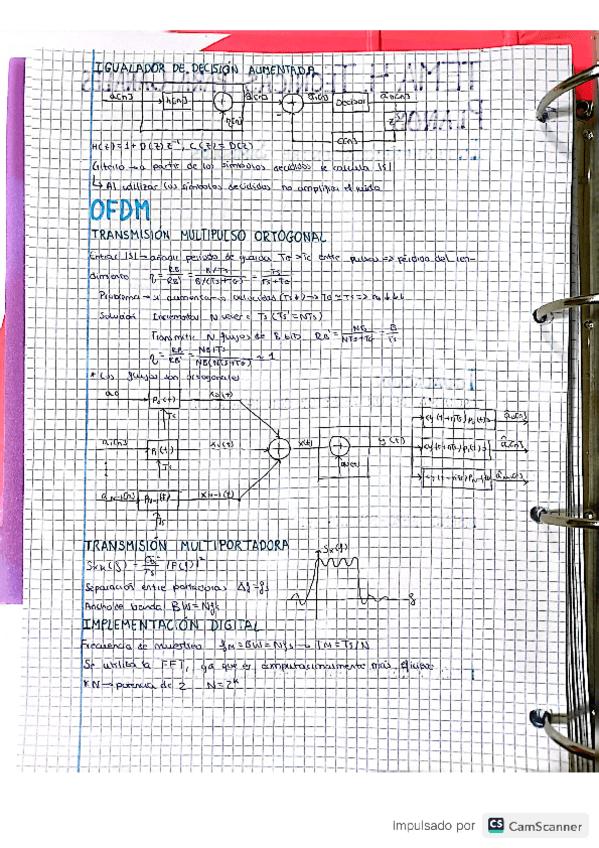 IGUALADOR DE DECISIÓN AUMENTADA
a[n] h[n] + + Decisor
C[n]
H(z)=1+D(z)z⁻¹, C(z)=D(z)
Criterio → a partir de los símbolos decididos se calcula ISI
↳ Al utilizar los símbolos decididos no amplifica el ruido
OFDM
TRANSMISIÓN MULTIPULSO ORTOGONAL
Evitar ISI → añadir periodo de guarda TG > Tc entre pulsos => pérdida del ren-
dimiento η = RB'/RB = = Ts/(Ts+TG)
Problema → si aumentamos velocidad (Ts↓) → TG ≈ Ts => η ↓↓↓
Solución Incrementar N veces Ts (Ts' = NTs)
Transmitir N flujos de B bits RB' = NB/(NTs+TG) ≈ B/Ts
η = RB'/RB = ≈ 1
* Los flujos son ortogonales
a0 p0(t) x0(t)
Ts
a1[n] p1(t) x1(t) + x(t) + y(t)
Ts
aN-1[n] pN-1(t) xN-1(t)
Ts
TRANSMISIÓN MULTIPORTADORA
Sx(f)
|P(f)|²
Separación entre portadoras Δf=fs
f
Ancho de banda BW=Nfs
IMPLEMENTACIÓN DIGITAL
Frecuencia de muestreo fM=BW=Nfs → TM=Ts/N
Se utiliza la FFT, ya que es computacionalmente más eficiente
* N → potencia de 2 N=2ᴷ
Impulsado por CS CamScanner